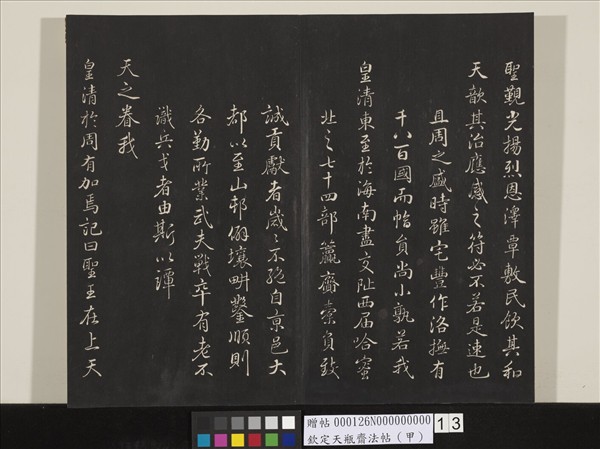 聖覲光揚烈恩澤覃敷民飲其和
天歆其治應感之符必不若是速也
且周之盛時雖宅豐作洛撫有
千八百國而幅員尚小孰若我
皇清東至於海南盡交阯西届哈蜜
北之七十四部籯齎橐負致
誠貢獻者歲〻不絕自京邑大
都以至山邨僻壤畊鑿順則
各勤所業武夫戰卒有老不
識兵戈者由斯以譚
天之眷我
皇清於周有加焉記曰聖王在上天
贈帖 000126N000000000
欽定天瓶齋法帖（甲）
13